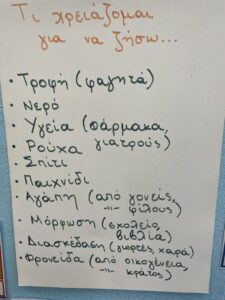 Τι χρειάζομαι
για να ζήσω...
• Τροφή (φαγητά)
• Νερό
• Υγεία (φάρμακα,
γιατρούς)
• Ρούχα
• Σπίτι
• Παιχνίδι
• Αγάπη (από γονείς,
-"- φίλους)
• Μόρφωση (σχολείο,
βιβλία)
• Διασκέδαση (γιορτές, χαρά)
• Φροντίδα (από οικογένεια,
-"- κράτος)